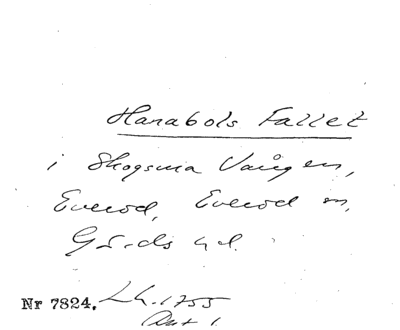 Harabols Fallet
i Skogsma Vången,
Everöd, Everöd sn,
Gärds hd.
Nr 7824. Lh. 1755
Akt 1